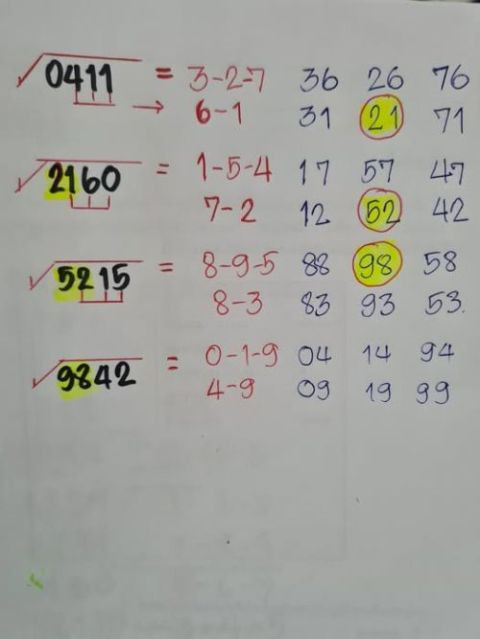 √0411 = 3-2-7 36 26 76
→ 6-1 31 21 71
√2160 = 1-5-4 17 57 47
7-2 12 52 42
√5215 = 8-9-5 88 98 58
8-3 83 93 53.
√9842 = 0-1-9 04 14 94
4-9 09 19 99